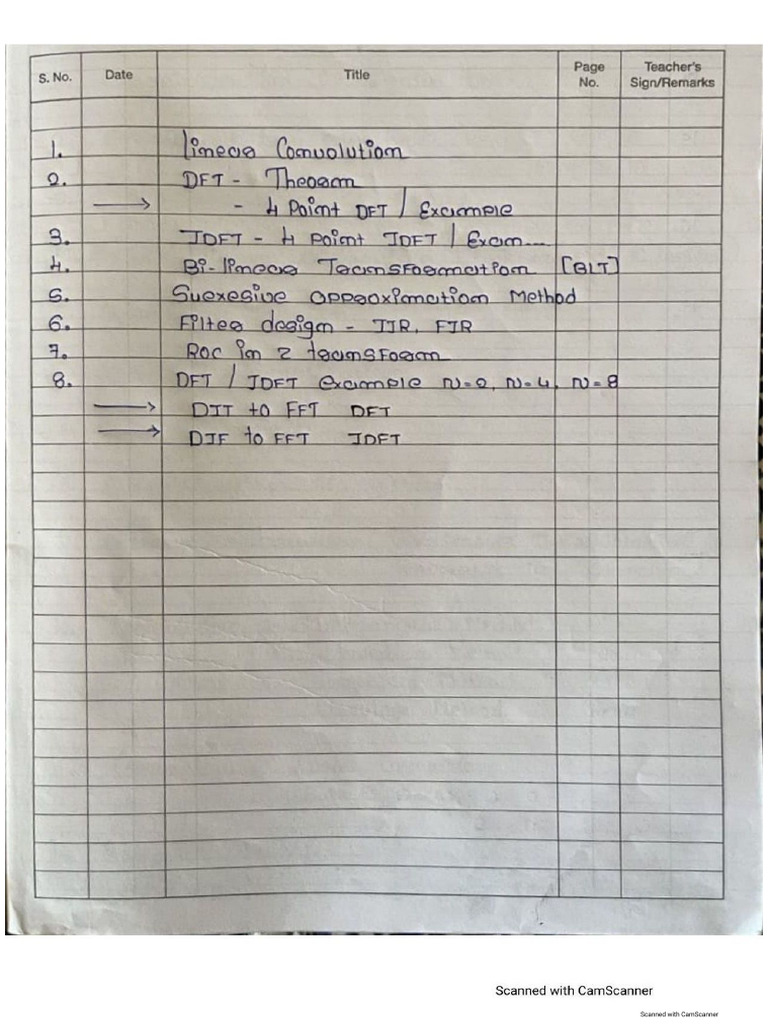 S. No. Date Title Page No. Teacher's Sign/Remarks
1. Linear Convolution
2. DFT - Theoram
- 4 Point DFT / Example
3. IDFT - 4 Point IDFT / Exam...
4. Bi-linear Transformation [BLT]
5. Suexesive Opproximation Method
6. Filter design - IIR, FIR
7. ROC in Z transform
8. DFT / IDFT example N=2, N=4, N=8
DIT to FFT DFT
DIF to FFT IDFT
Scanned with CamScanner
Scanned with CamScanner